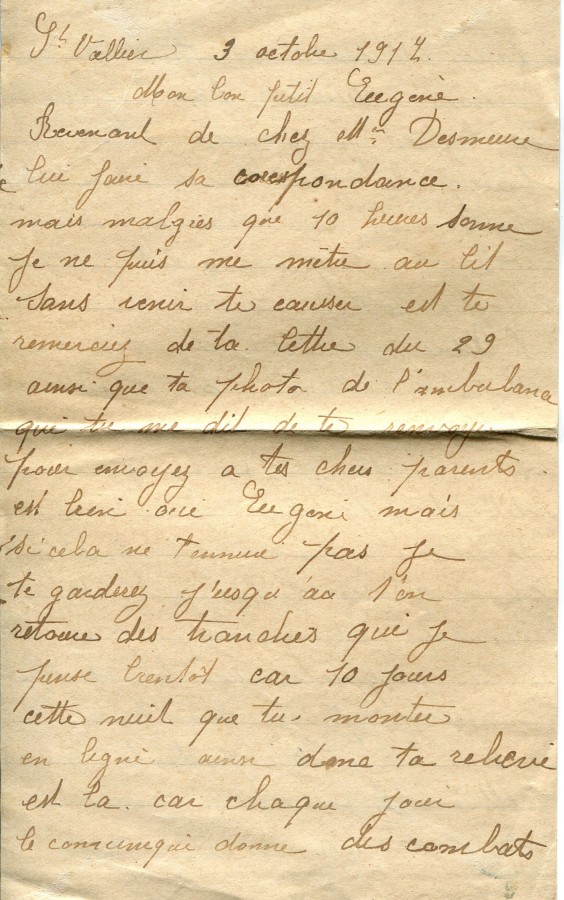 St Vallier 3 octobre 1917.
Mon bon petit Eugène.
Revenant de chez Mme Desmeure
lui faire sa correspondance.
mais malgres que 10 heures sonne
Je ne puis me mètre au lit
sans venir te causser est te
remerciez de ta lettre du 29
ainsi que ta photo de l'ambulance
que tu me dit de te renvoyer
pour envoyez a tes chers parents.
est bien oui Eugene mais
si cela ne tennuie pas Je
te garderez j'usqu'au ton
retour des tranchés que je
pense bientôt car 10 jours
cette nuit que tu montée
en ligne ainsi donc ta relève
est la. car chaque jour
le comunique donne des combats